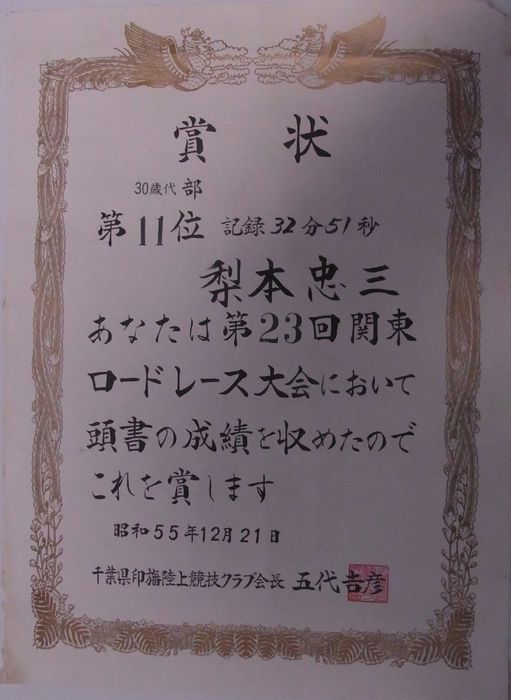 賞状
30歳代部
第11位 記録32分51秒
梨本忠三
あなたは第23回関東
ロードレース大会において
頭書の成績を収めたので
これを賞します
昭和55年12月21日
千葉県印旛陸上競技クラブ会長 五代吉彦